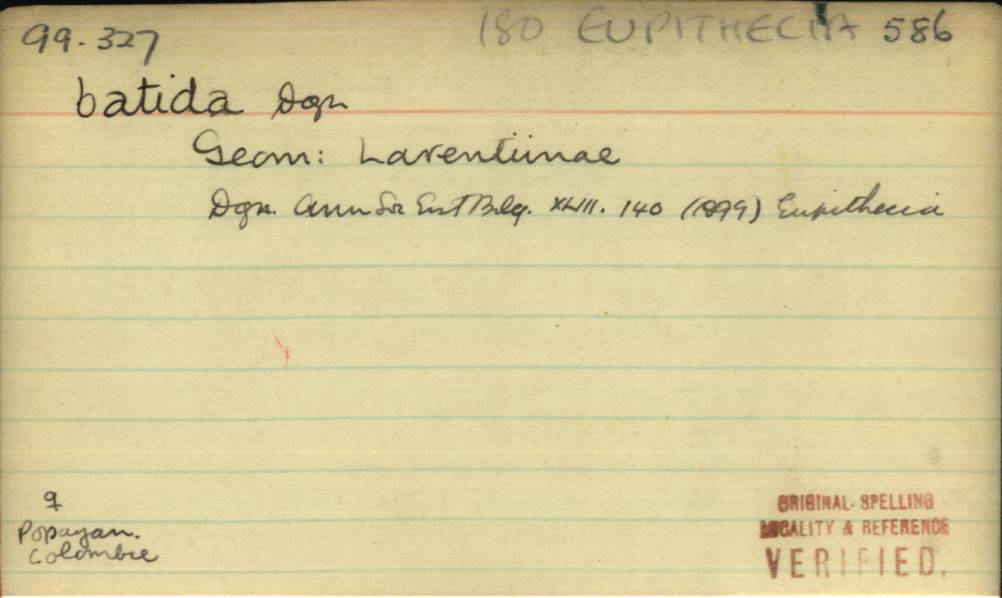 99.327 180 EUPITHECIA 586
batida Dgn
Geom: Larentiinae
Dgn. Ann Soc Ent Belg. XLIII. 140 (1899) Eupithecia
♀
Popayan.
Colombie
ORIGINAL SPELLING
LOCALITY & REFERENCE
VERIFIED.